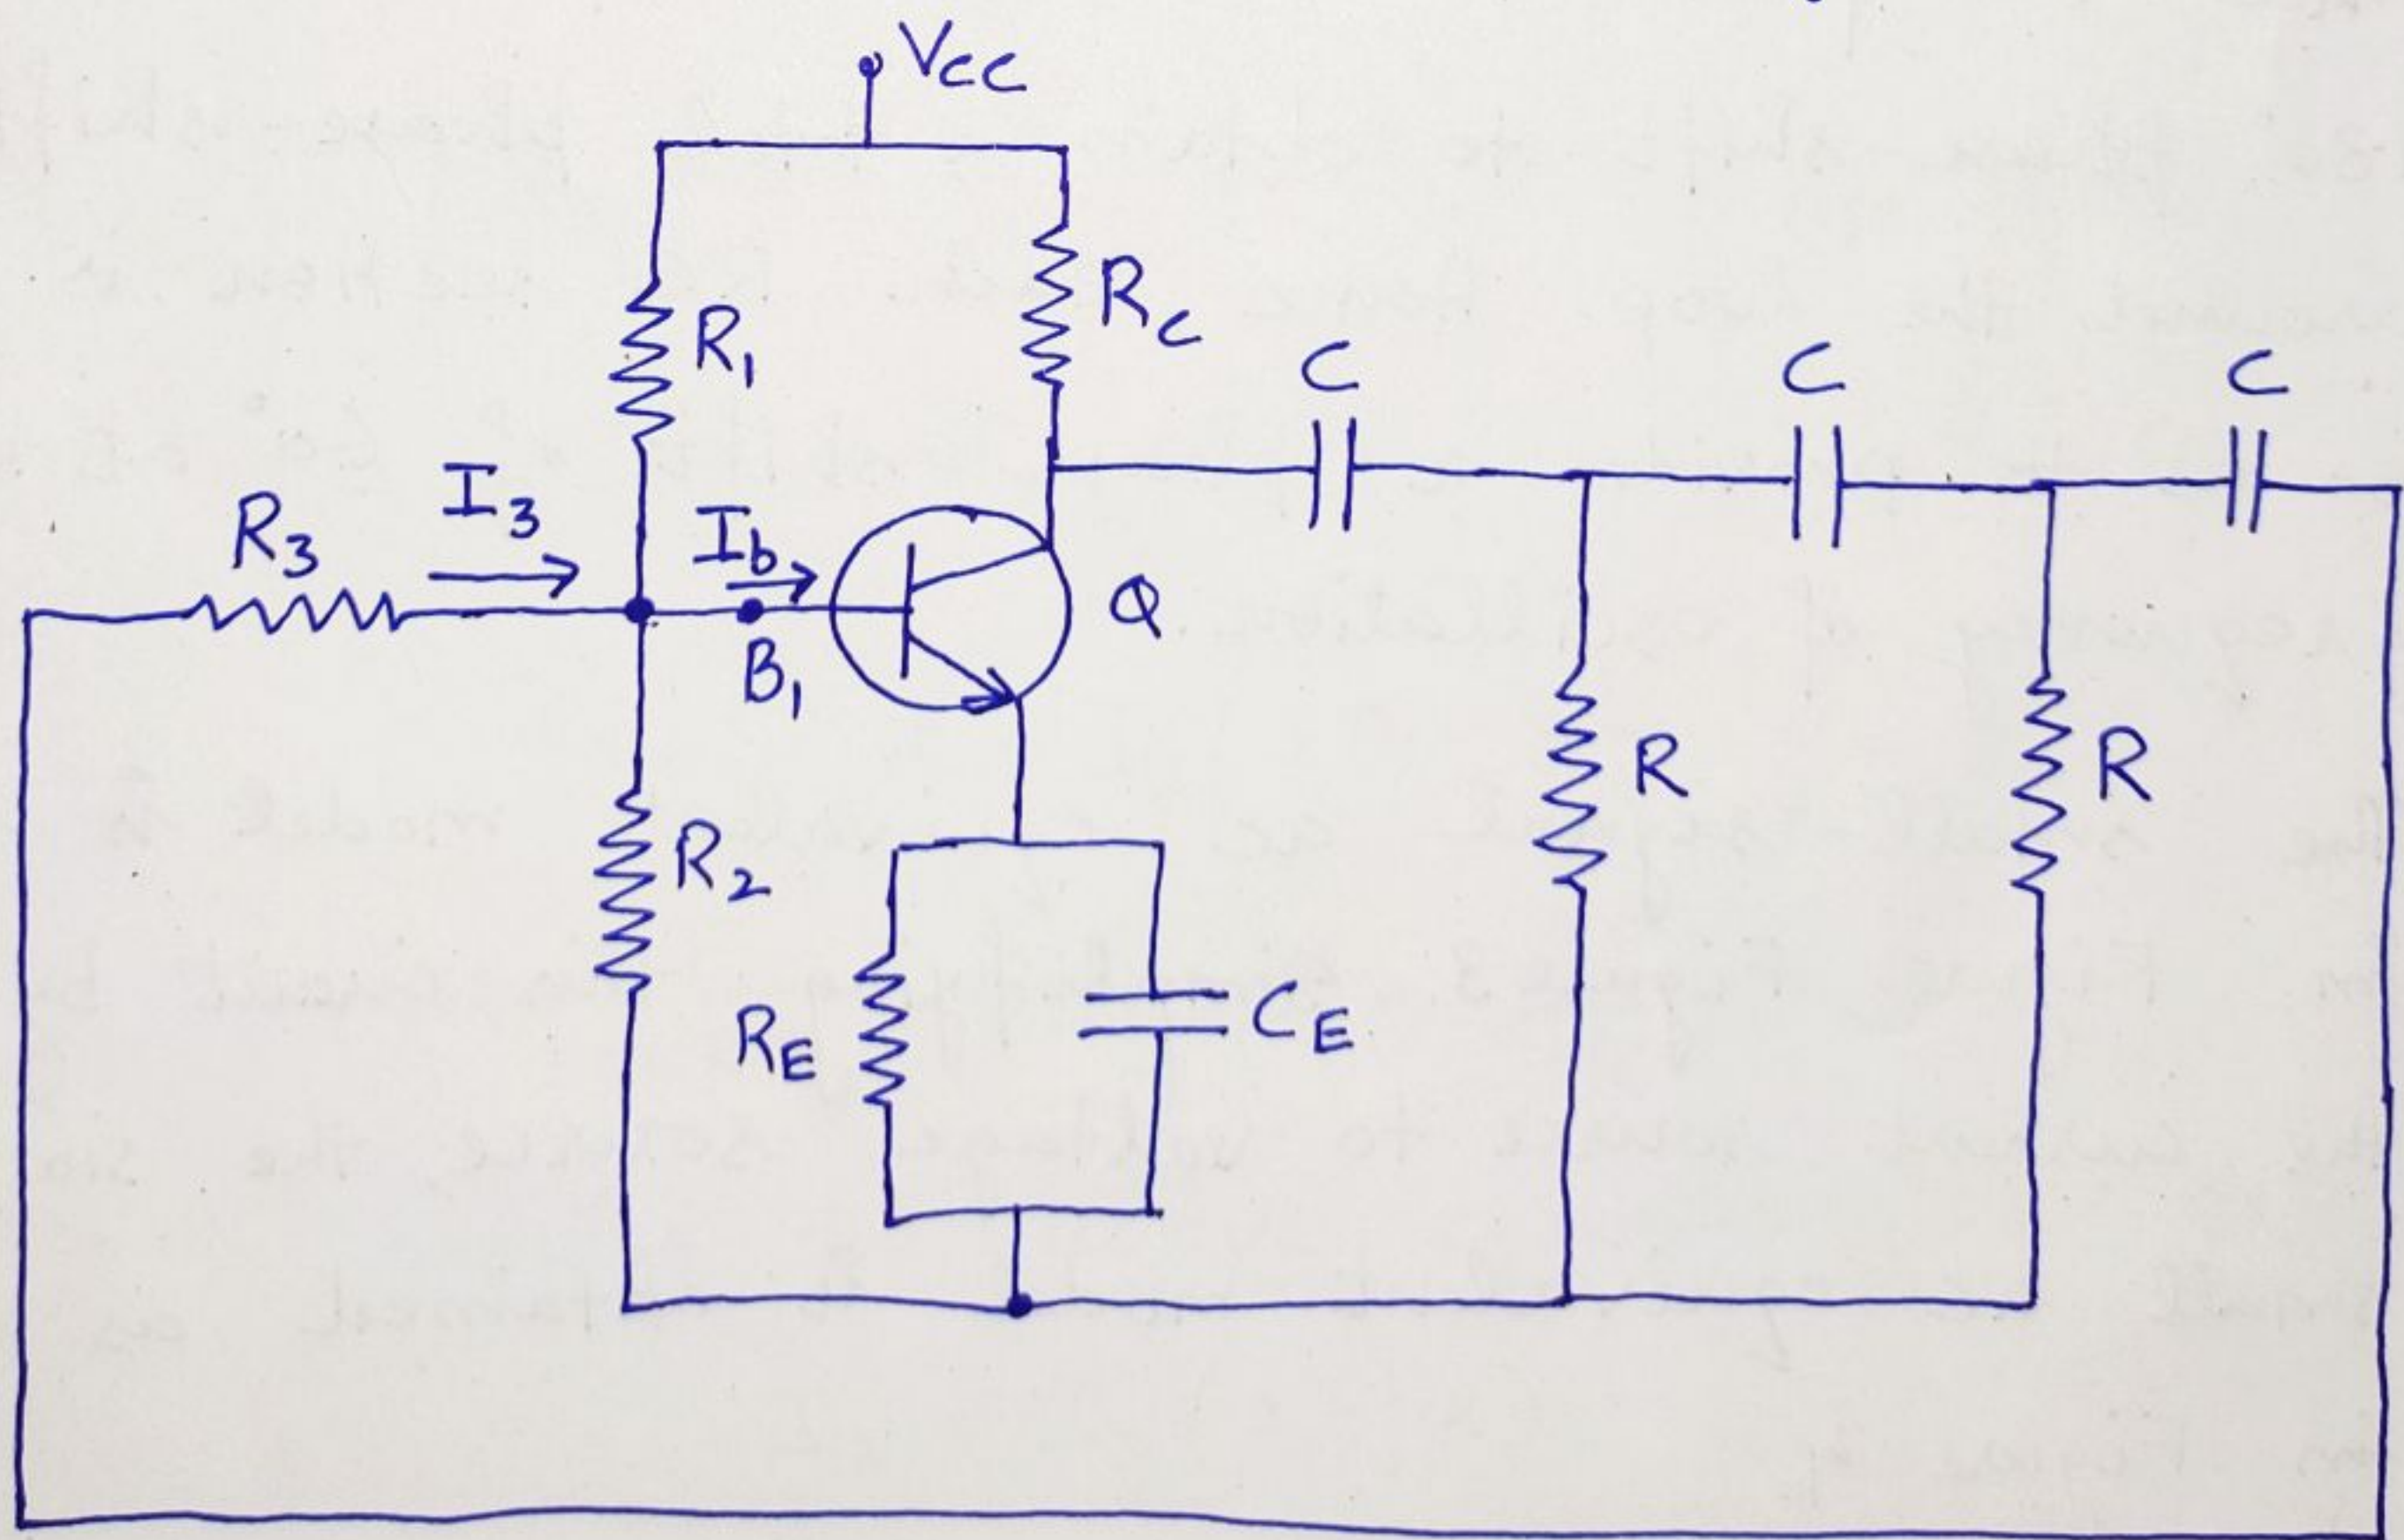 VCC
R1
RC
C
C
C
R3
I3
Ib
B1
Q
R2
R
R
RE
CE